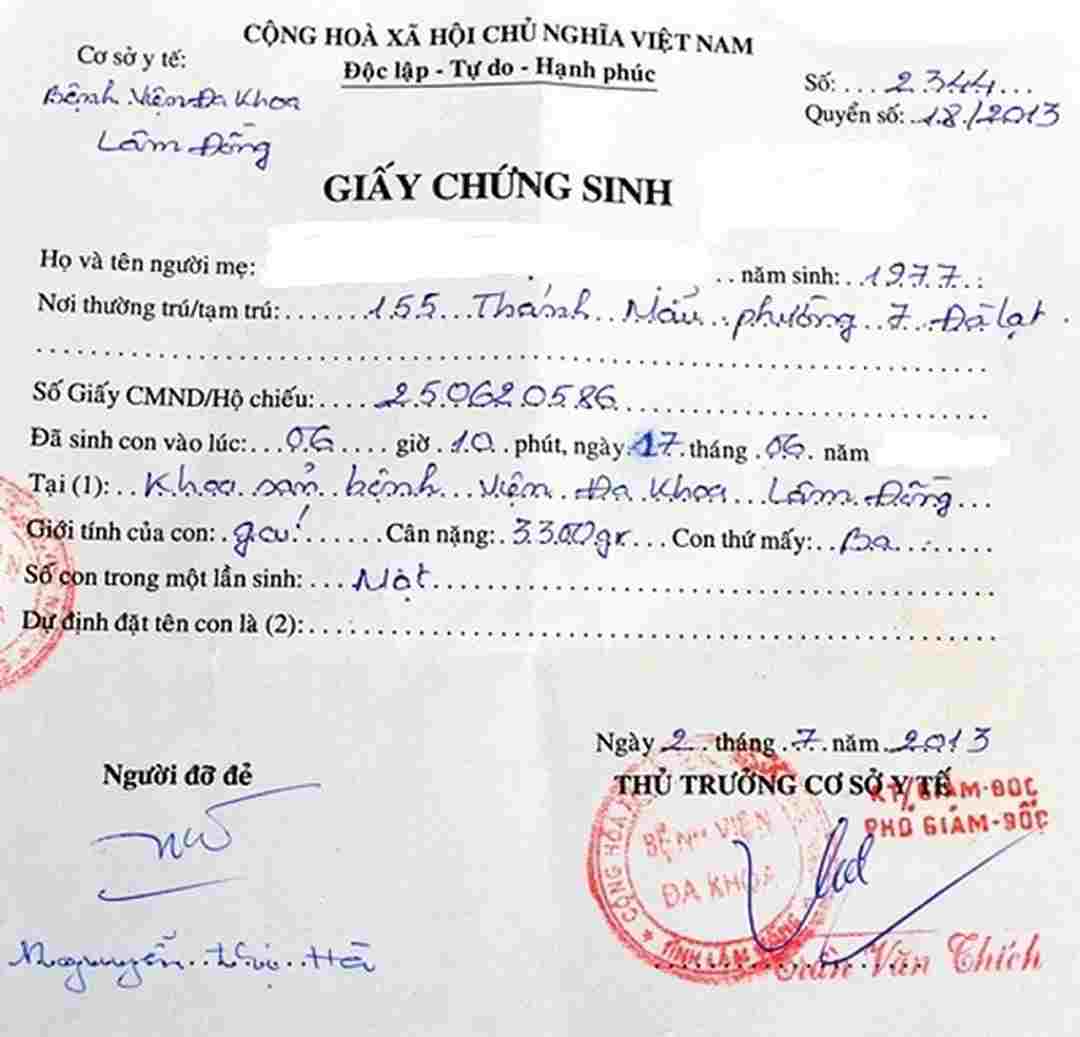 CỘNG HOÀ XÃ HỘI CHỦ NGHĨA VIỆT NAM
Độc lập - Tự do - Hạnh phúc
Cơ sở y tế:
Bệnh viện Đa khoa
Lâm Đồng
Số: ... 2344...
Quyển số: 18/2013
GIẤY CHỨNG SINH
Họ và tên người mẹ: .. năm sinh: 1977
Nơi thường trú/tạm trú: ...... 155 Thánh Mẫu phường 7 Đà lạt
Số Giấy CMND/Hộ chiếu: .... 250620586
Đã sinh con vào lúc: ... 06 .... giờ 10 phút, ngày 17 tháng 06 năm
Tại (1): .. Khoa sản bệnh viện Đa khoa Lâm Đồng
Giới tính của con: gái ...... Cân nặng: 3300gr ... Con thứ mấy: .. Ba
Số con trong một lần sinh: ... Một
Dự định đặt tên con là (2):
Ngày 2 tháng 7 năm 2013
Người đỡ đẻ
THỦ TRƯỞNG CƠ SỞ Y TẾ
KT/GIÁM-ĐỐC
PHÓ GIÁM-ĐỐC
BỆNH VIỆN
ĐA KHOA
TỈNH LÂM ĐỒNG
Nguyễn Thị Hà
Trần Văn Thích